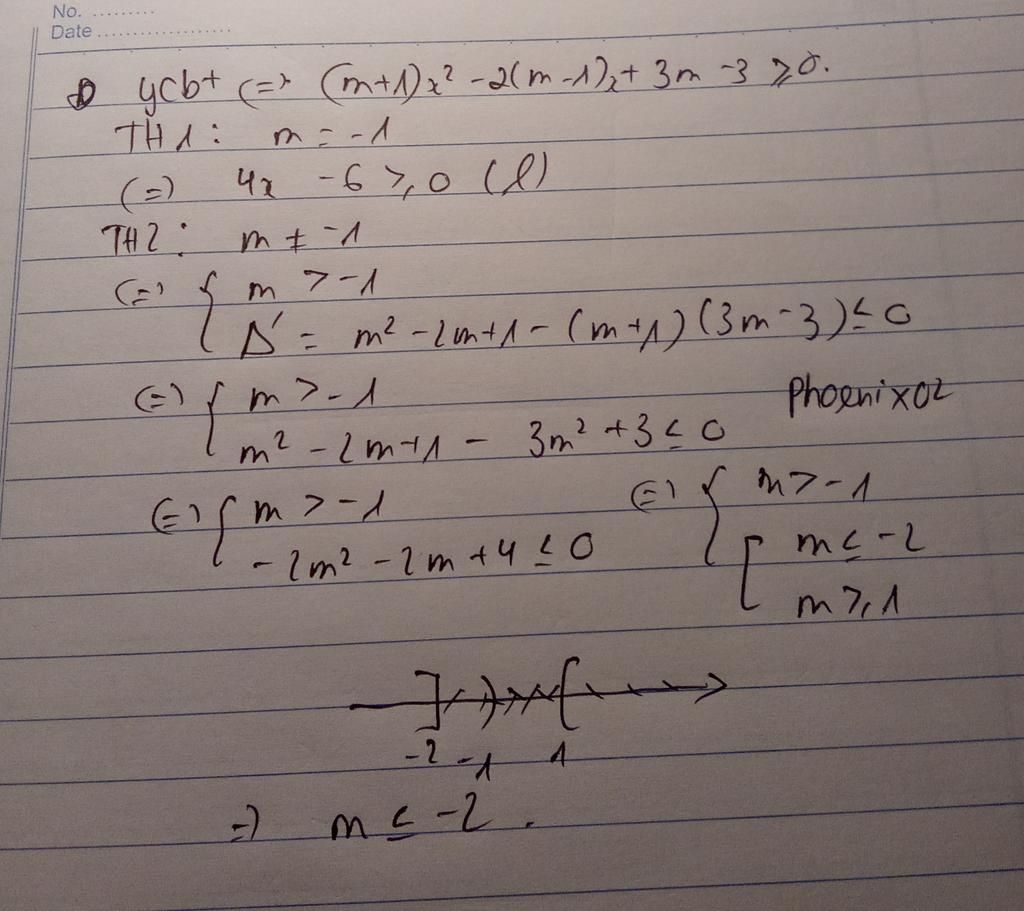 No. .........
Date ...................
ycbt (=) (m+1)x² -2(m-1)x + 3m -3 ≥ 0.
TH1: m = -1
(=) 4x -6 ≥ 0 (l)
TH2: m ≠ -1
(=) { m > -1
Δ' = m² -2m+1 - (m+1)(3m-3) ≤ 0
(=) { m > -1
m² -2m+1 - 3m² +3 ≤ 0
Phoenix02
(=) { m > -1
-2m² -2m +4 ≤ 0
(=) { m > -1
[ m ≤ -2
m ≥ 1
-2 -1 1
=) m ≤ -2.